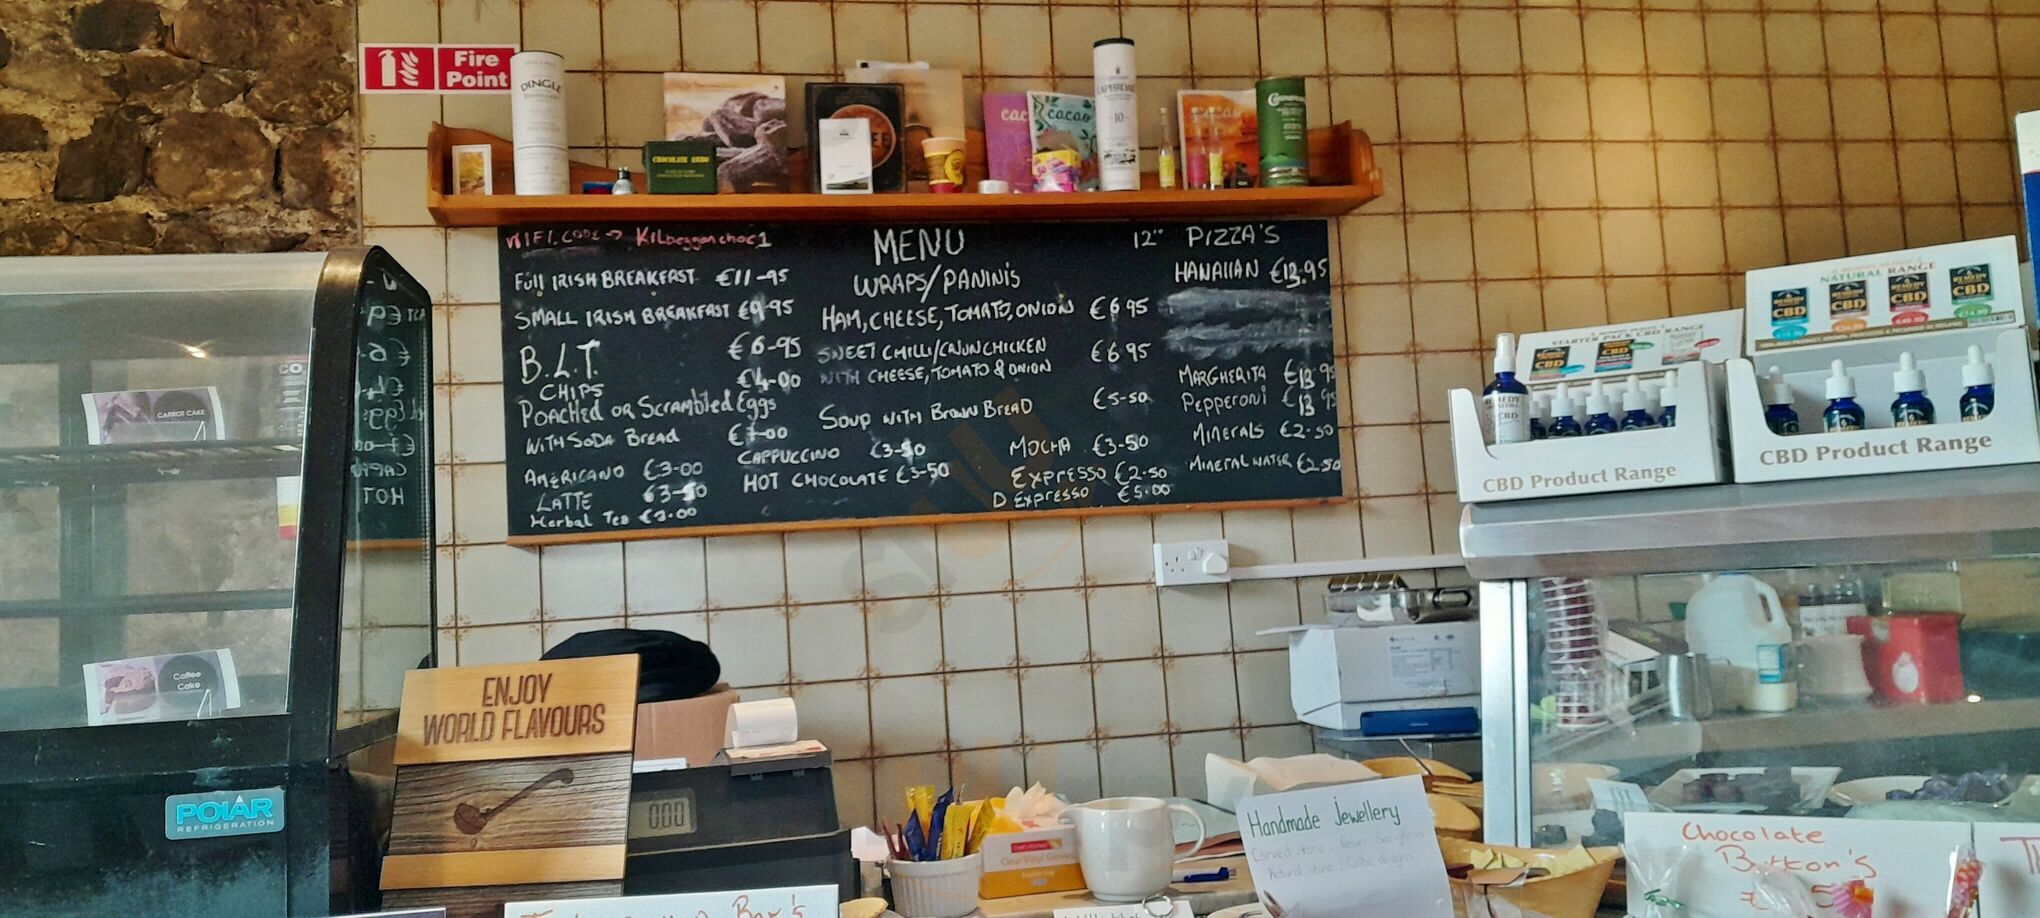 Fire
Point
DINGLE
cacao
cacao
10
WIFI CODE → Kilbegganchoc1
MENU
12" PIZZA'S
Full IRISH BREAKFAST €11-95
SMALL IRISH BREAKFAST €9-95
B.L.T €6-95
CHIPS €4-00
Poached or Scrambled Eggs
WITH SODA Bread €7-00
AMERICANO €3-00
LATTE €3-50
Herbal Tea €3.00
WRAPS/PANINIS
HAM, CHEESE, TOMATO, ONION €6 95
SWEET CHILLI/CAJUN CHICKEN €6 95
WITH CHEESE, TOMATO & ONION
SOUP WITH BROWN BREAD €5-50
CAPPUCCINO €3-50
HOT CHOCOLATE €3-50
MOCHA €3-50
EXPRESSO €2.50
D EXPRESSO €5.00
HAWAIIAN €13.95
MARGHERITA €13 95
Pepperoni €13 95
MINERALS €2.50
MINERAL WATER €2.50
CARROT CAKE
Coffee
Cake
POLAR
REFRIGERATION
ENJOY
WORLD FLAVOURS
0.00
Clear Vinyl Gloves
Handmade Jewellery
NATURAL RANGE
CBD
CBD
CBD
CBD
STARTER PACK CBD RANGE
CBD Product Range
CBD Product Range
Chocolate
Button's